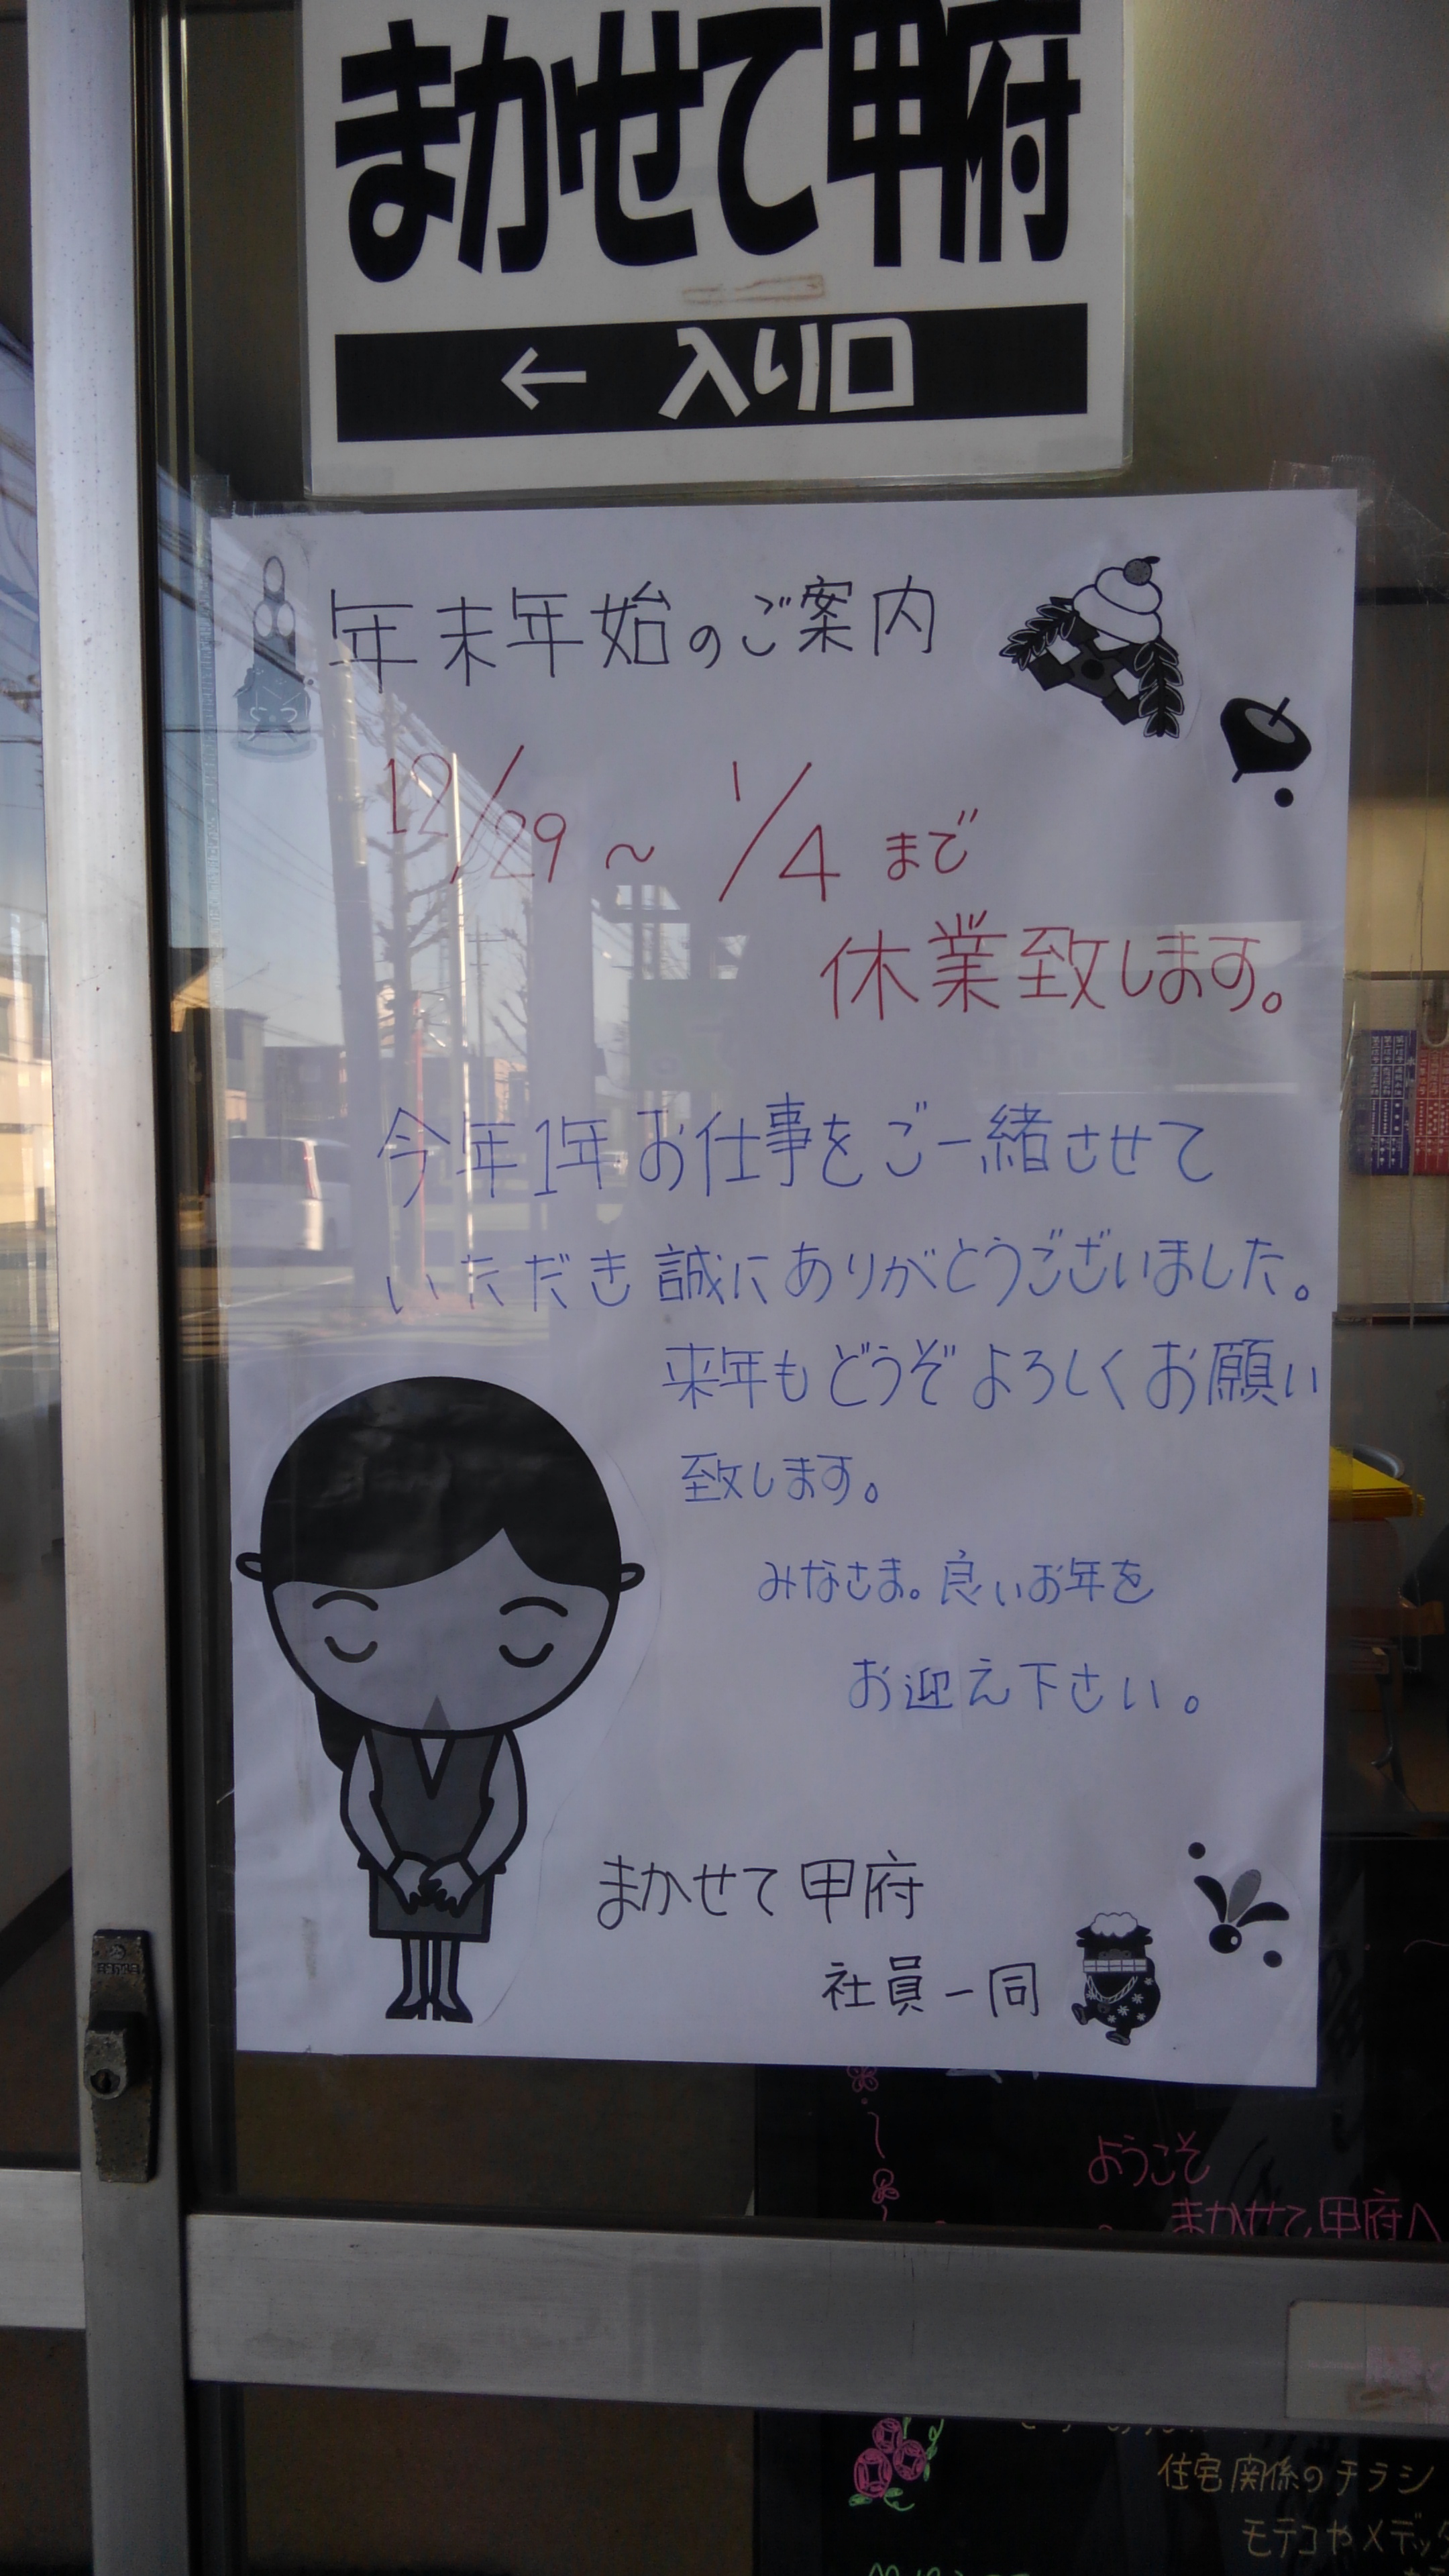 まかせて甲府
← 入り口
年末年始のご案内
12/29 ～ 1/4 まで
休業致します。
今年1年お仕事をご一緒させて
いただき誠にありがとうございました。
来年もどうぞよろしくお願い
致します。
みなさま。良いお年を
お迎え下さい。
まかせて甲府
社員一同
ようこそ
まかせて甲府へ
住宅関係のチラシ
モデコやメデッ